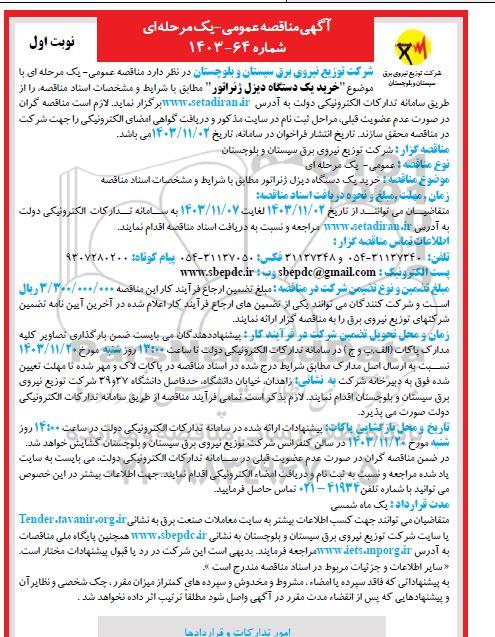 آگهی مناقصه عمومی-یک مرحله ای
شماره ۶۴-۱۴۰۳
نوبت اول
شرکت توزیع نیروی برق
سیستان و بلوچستان
شرکت توزیع نیروی برق سیستان و بلوچستان در نظر دارد مناقصه عمومی- یک مرحله ای با
موضوع "خرید یک دستگاه دیزل ژنراتور" مطابق با شرایط و مشخصات اسناد مناقصه، را از
طریق سامانه تدارکات الکترونیکی دولت به آدرس www.setadiran.ir برگزار نماید. لازم است مناقصه گران
در صورت عدم عضویت قبلی، مراحل ثبت نام در سایت مذکور و دریافت گواهی امضای الکترونیکی را جهت شرکت
در مناقصه محقق سازند. تاریخ انتشار فراخوان در سامانه، تاریخ ۱۴۰۳/۱۱/۰۲ می باشد.
مناقصه گزار: شرکت توزیع نیروی برق سیستان و بلوچستان
نوع مناقصه: عمومی- یک مرحله ای
موضوع مناقصه: خرید یک دستگاه دیزل ژنراتور مطابق با شرایط و مشخصات اسناد مناقصه
زمان، مهلت، مبلغ و نحوه دریافت اسناد مناقصه:
متقاضیان می توانند از تاریخ ۱۴۰۳/۱۱/۰۲ لغایت ۱۴۰۳/۱۱/۰۷ به سامانه تدارکات الکترونیکی دولت
به آدرس www.setadiran.ir مراجعه و نسبت به دریافت اسناد مناقصه اقدام نمایند.
اطلاعات تماس مناقصه گزار:
تلفن: ۳۱۱۳۷۲۴۰-۰۵۴ و ۳۱۱۳۷۳۴۸ فکس: ۳۱۱۳۷۰۵۰-۰۵۴ پیام کوتاه: ۹۳۰۷۲۸۰۲۰۰
پست الکترونیک: sbepdc@gmail.com وب: www.sbepdc.ir
مبلغ تضمین و نوع تضمین شرکت در مناقصه: مبلغ تضمین ارجاع فرآیند کار این مناقصه ۳/۳۰۰/۰۰۰/۰۰۰ ریال
است و شرکت کنندگان می توانند یکی از تضمین های ارجاع فرآیند کار اعلام شده در آخرین آیین نامه تضمین
شرکتهای توزیع نیروی برق را به مناقصه گزار ارائه نمایند.
زمان و محل تحویل تضمین شرکت در فرآیند کار: پیشنهاددهندگان می بایست ضمن بارگذاری تصاویر کلیه
مدارک پاکات (الف، ب و ج) در سامانه تدارکات الکترونیکی دولت تا ساعت ۱۳:۰۰ روز شنبه مورخ ۱۴۰۳/۱۱/۲۰
نسبت به ارسال اصل مدارک مطابق شرایط درج شده در اسناد مناقصه در پاکات لاک و مهر شده تا مهلت تعیین
شده فوق به دبیرخانه شرکت به نشانی: زاهدان، خیابان دانشگاه، حدفاصل دانشگاه ۳۷ و ۳۹ شرکت توزیع نیروی
برق سیستان و بلوچستان اقدام نمایند. لازم بذکر است تمامی فرآیند مناقصه از طریق سامانه تدارکات الکترونیکی
دولت صورت می پذیرد.
تاریخ و محل بازگشایی پاکات: پیشنهادات ارائه شده در سامانه تدارکات الکترونیکی دولت در ساعت ۱۴:۰۰ روز
شنبه مورخ ۱۴۰۳/۱۱/۲۰ در سالن کنفرانس شرکت توزیع نیروی برق سیستان و بلوچستان گشایش خواهد شد.
در ضمن مناقصه گران در صورت عدم عضویت قبلی در سامانه تدارکات الکترونیکی دولت، می بایست به سایت
یاد شده مراجعه و نسبت به ثبت نام و دریافت امضاء الکترونیکی اقدام نمایند. جهت اطلاعات بیشتر در این خصوص
می توانید با شماره تلفن ۴۱۹۳۴ - ۰۲۱ تماس حاصل فرمایید.
مدت قرارداد: یک ماه شمسی
متقاضیان می توانند جهت کسب اطلاعات بیشتر به سایت معاملات صنعت برق به نشانی Tender.tavanir.org.ir
یا سایت شرکت توزیع نیروی برق سیستان و بلوچستان به نشانی www.sbepdc.ir و همچنین پایگاه ملی مناقصات
به آدرس www.iets.mporg.ir مراجعه فرمایند. بدیهی است این شرکت در رد یا قبول پیشنهادات مختار است.
« سایر اطلاعات و جزئیات مربوط در اسناد مناقصه مندرج است ».
به پیشنهاداتی که فاقد سپرده یا امضاء، مشروط و مخدوش و سپرده های کمتر از میزان مقرر، چک شخصی و نظایر آن
و پیشنهادهایی که پس از انقضاء مدت مقرر در آگهی واصل شود مطلقاً ترتیب اثر داده نخواهد شد.
امور تدارکات و قراردادها